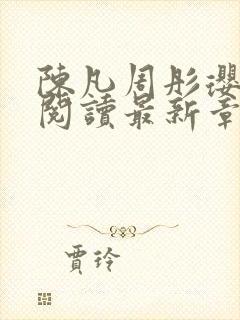 陳凡周彤瓔
閱讀最新章
賈玲